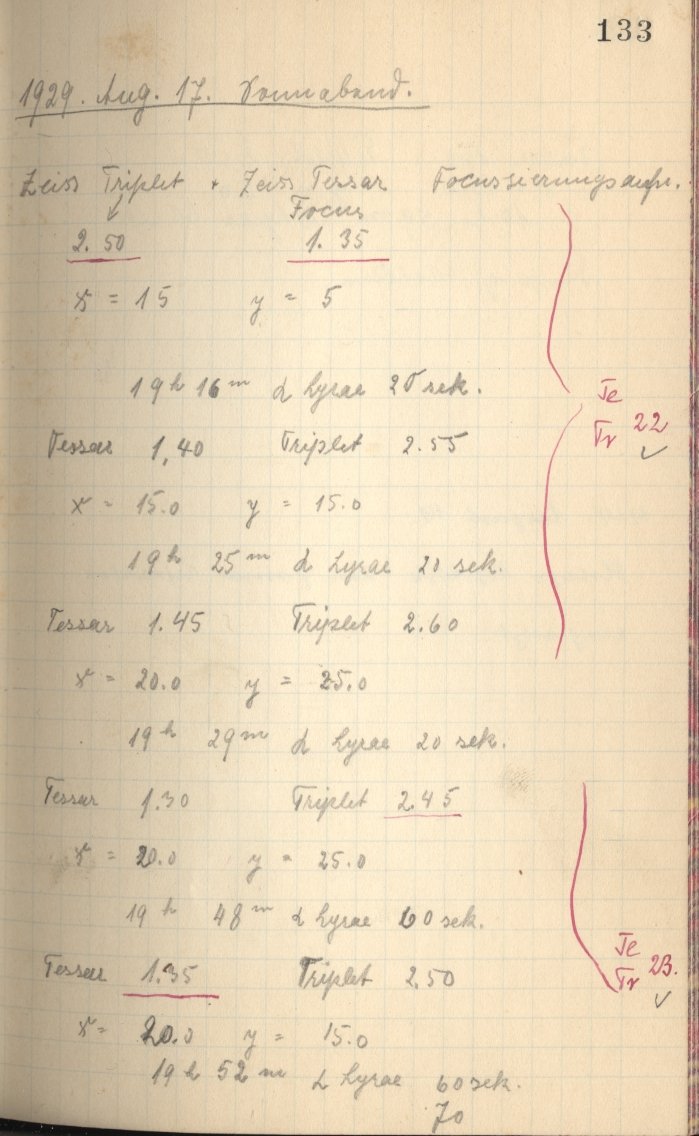 133
1929. Aug. 17. Sonnabend.
Zeiss Triplet + Zeiss Tessar Focussierungsaufn.
Focus
2.50 1.35
x = 15 y = 5
19h 16m α Lyrae 20 sek.
Te
Tr 22 ✓
Tessar 1,40 Triplet 2.55
x = 15.0 y = 15.0
19h 25m α Lyrae 20 sek.
Tessar 1.45 Triplet 2.60
x = 20.0 y = 25.0
19h 29m α Lyrae 20 sek.
Tessar 1.30 Triplet 2.45
x = 20.0 y = 25.0
19h 48m α Lyrae 60 sek.
Te
Tr 23. ✓
Tessar 1.35 Triplet 2.50
x = 20.0 y = 15.0
19h 52m α Lyrae 60 sek.
70